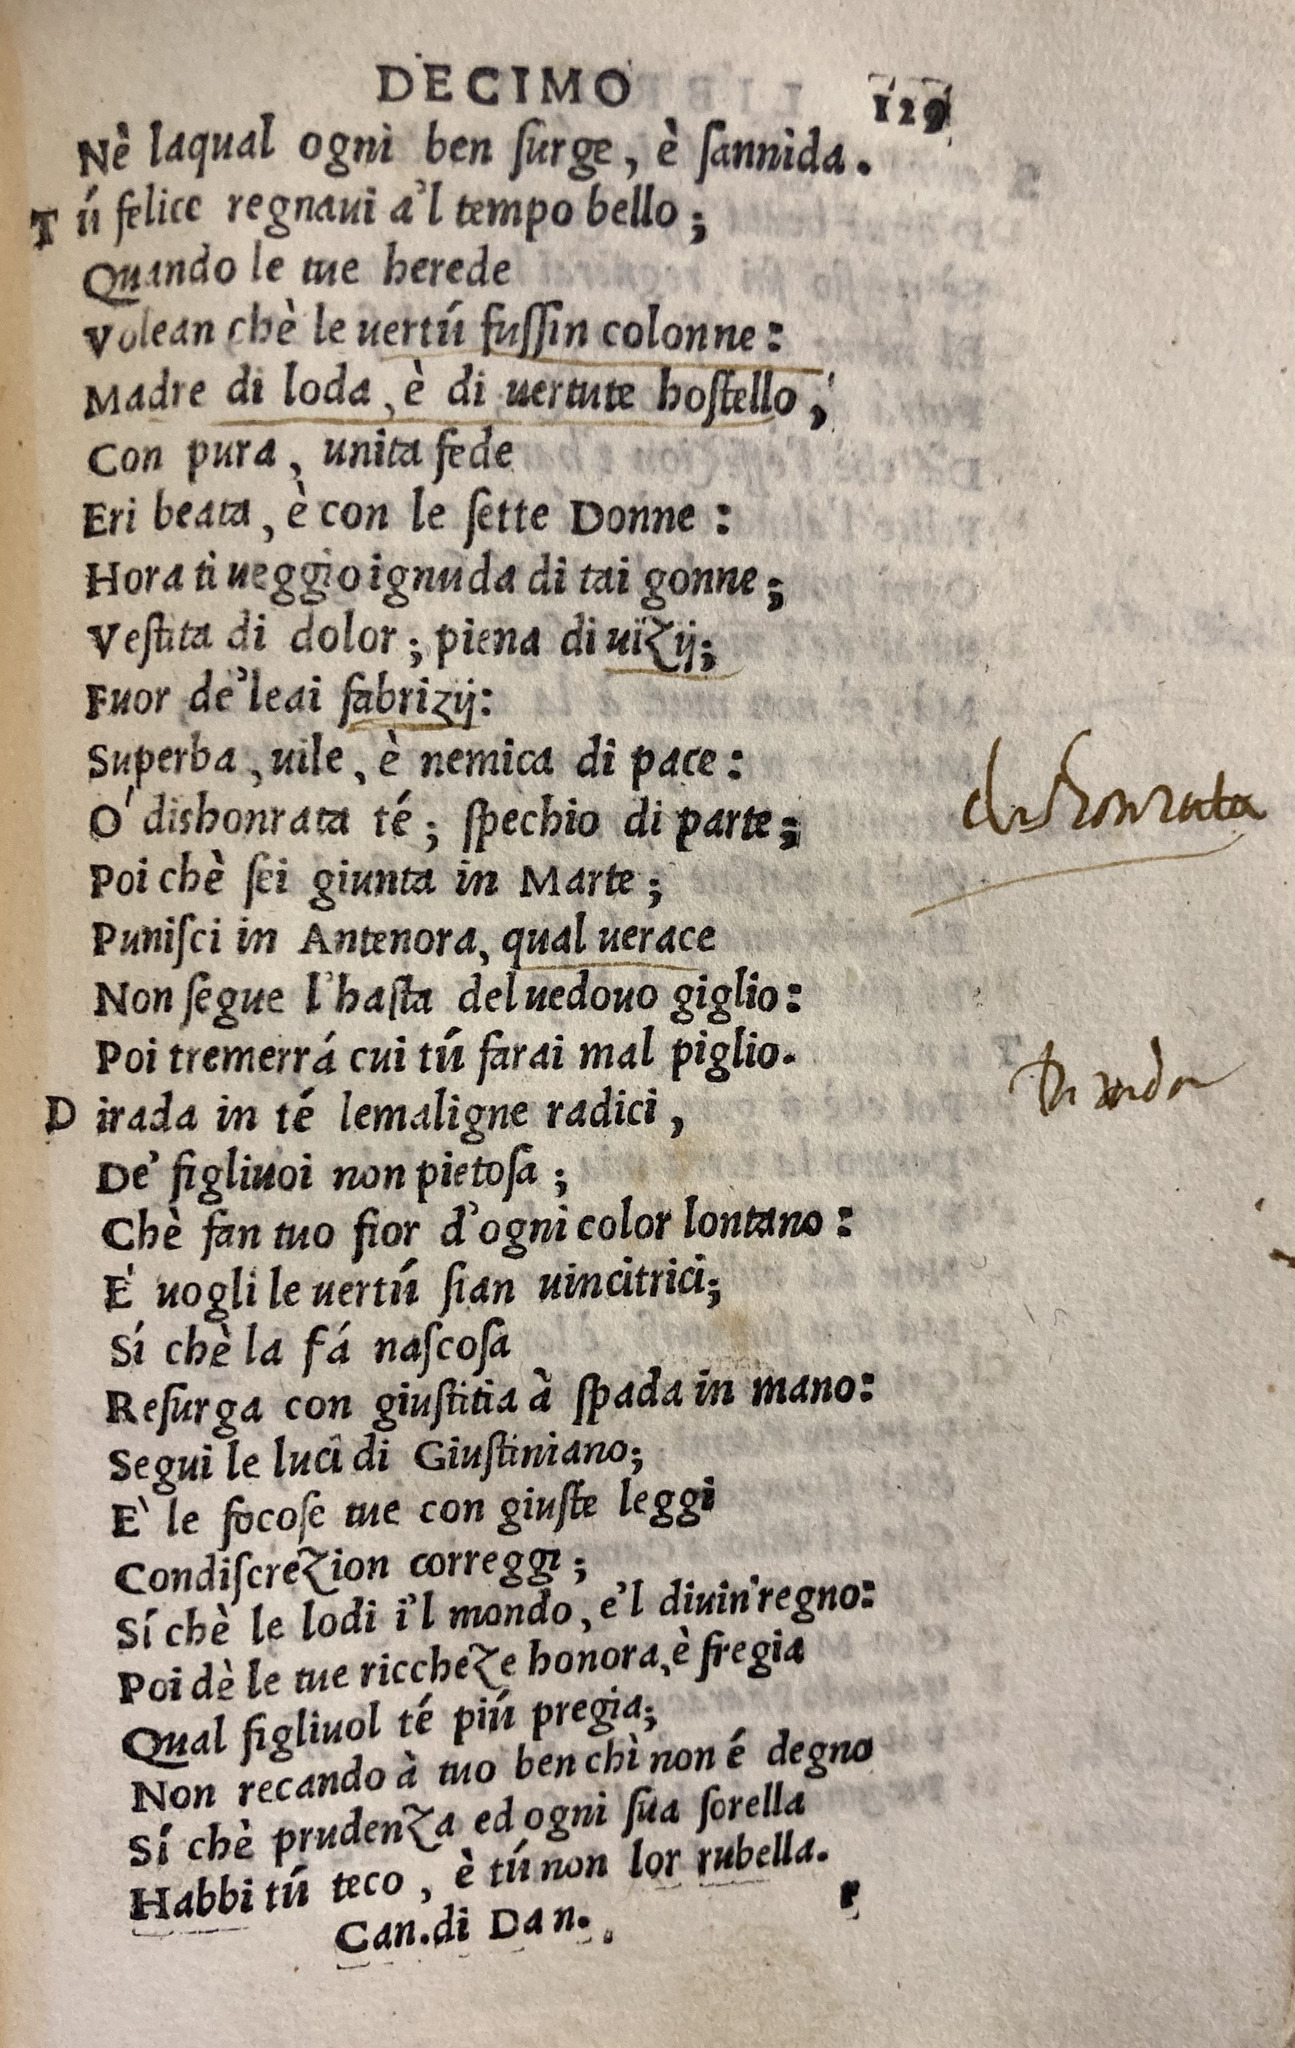 DECIMO 129
Nè laqual ogni ben ſurge, è ſannida.
Tú felice regnaui a'l tempo bello;
Quando le tue herede
Volean chè le uertú fuſſin colonne:
Madre di loda, è di uertute hoſtello;
Con pura, unita fede
Eri beata, è con le ſette Donne:
Hora ti ueggio ignuda di tai gonne;
Veſtita di dolor; piena di uiZij;
Fuor de'leai fabrizij:
Superba, uile, è nemica di pace:
O' dishonrata té; ſpechio di parte;
dishonrata
Poi chè ſei giunta in Marte;
Puniſci in Antenora, qual uerace
Non ſegue l'haſta del uedouo giglio:
Poi tremerrá cui tú farai mal piglio.
Dirada in té lemaligne radici,
De' figliuoi non pietoſa;
Chè fan tuo fior d'ogni color lontano:
E' uogli le uertú ſian uincitrici;
Sí chè la fá naſcoſa
Reſurga con giuſtitia à ſpada in mano:
Segui le luci di Giuſtiniano;
E' le focoſe tue con giuſte leggi
CondiſcreZion correggi;
Sí chè le lodi i'l mondo, e'l diuin regno:
Poi dè le tue riccheZe honora, è fregia
Qual figliuol té piú pregia;
Non recando à tuo ben chì non é degno
Sí chè prudenZa ed ogni ſua ſorella
Habbi tú teco, è tú non lor rubella.
Can.di Dan.